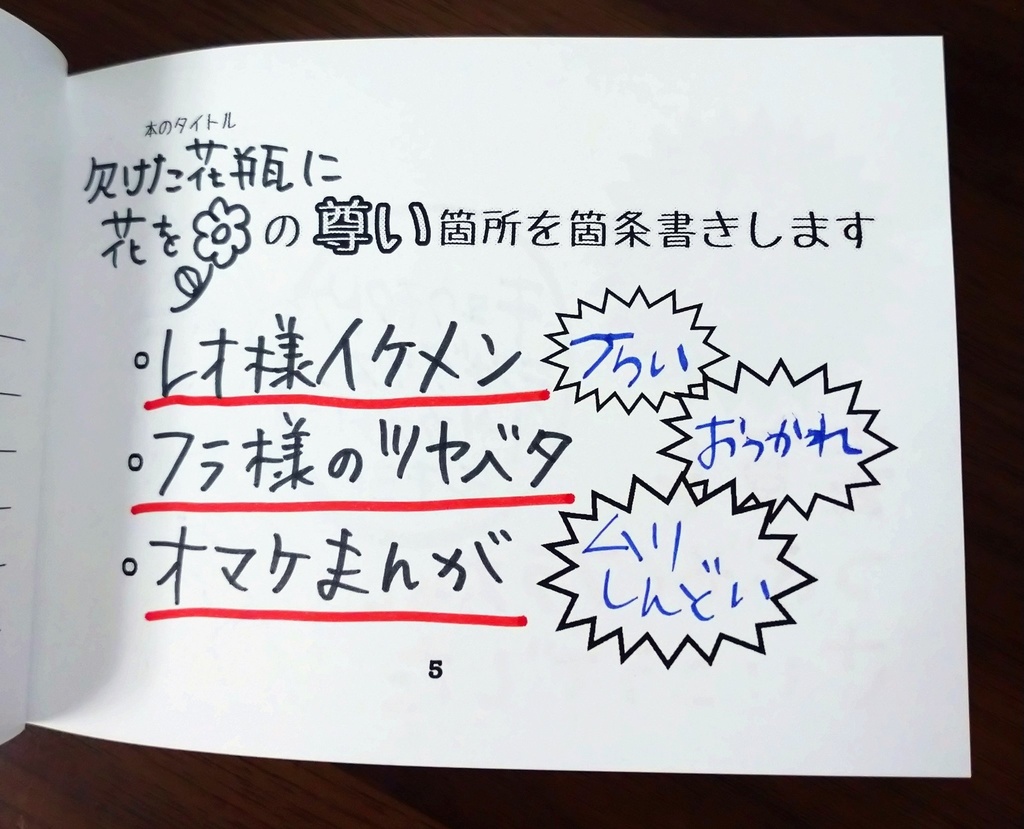 本のタイトル
欠けた花瓶に
花を の 尊い箇所を箇条書きします
○レオ様イケメン
つらい
○フラ様のツヤベタ
おつかれ
○オマケまんが
ムリ
しんどい
5